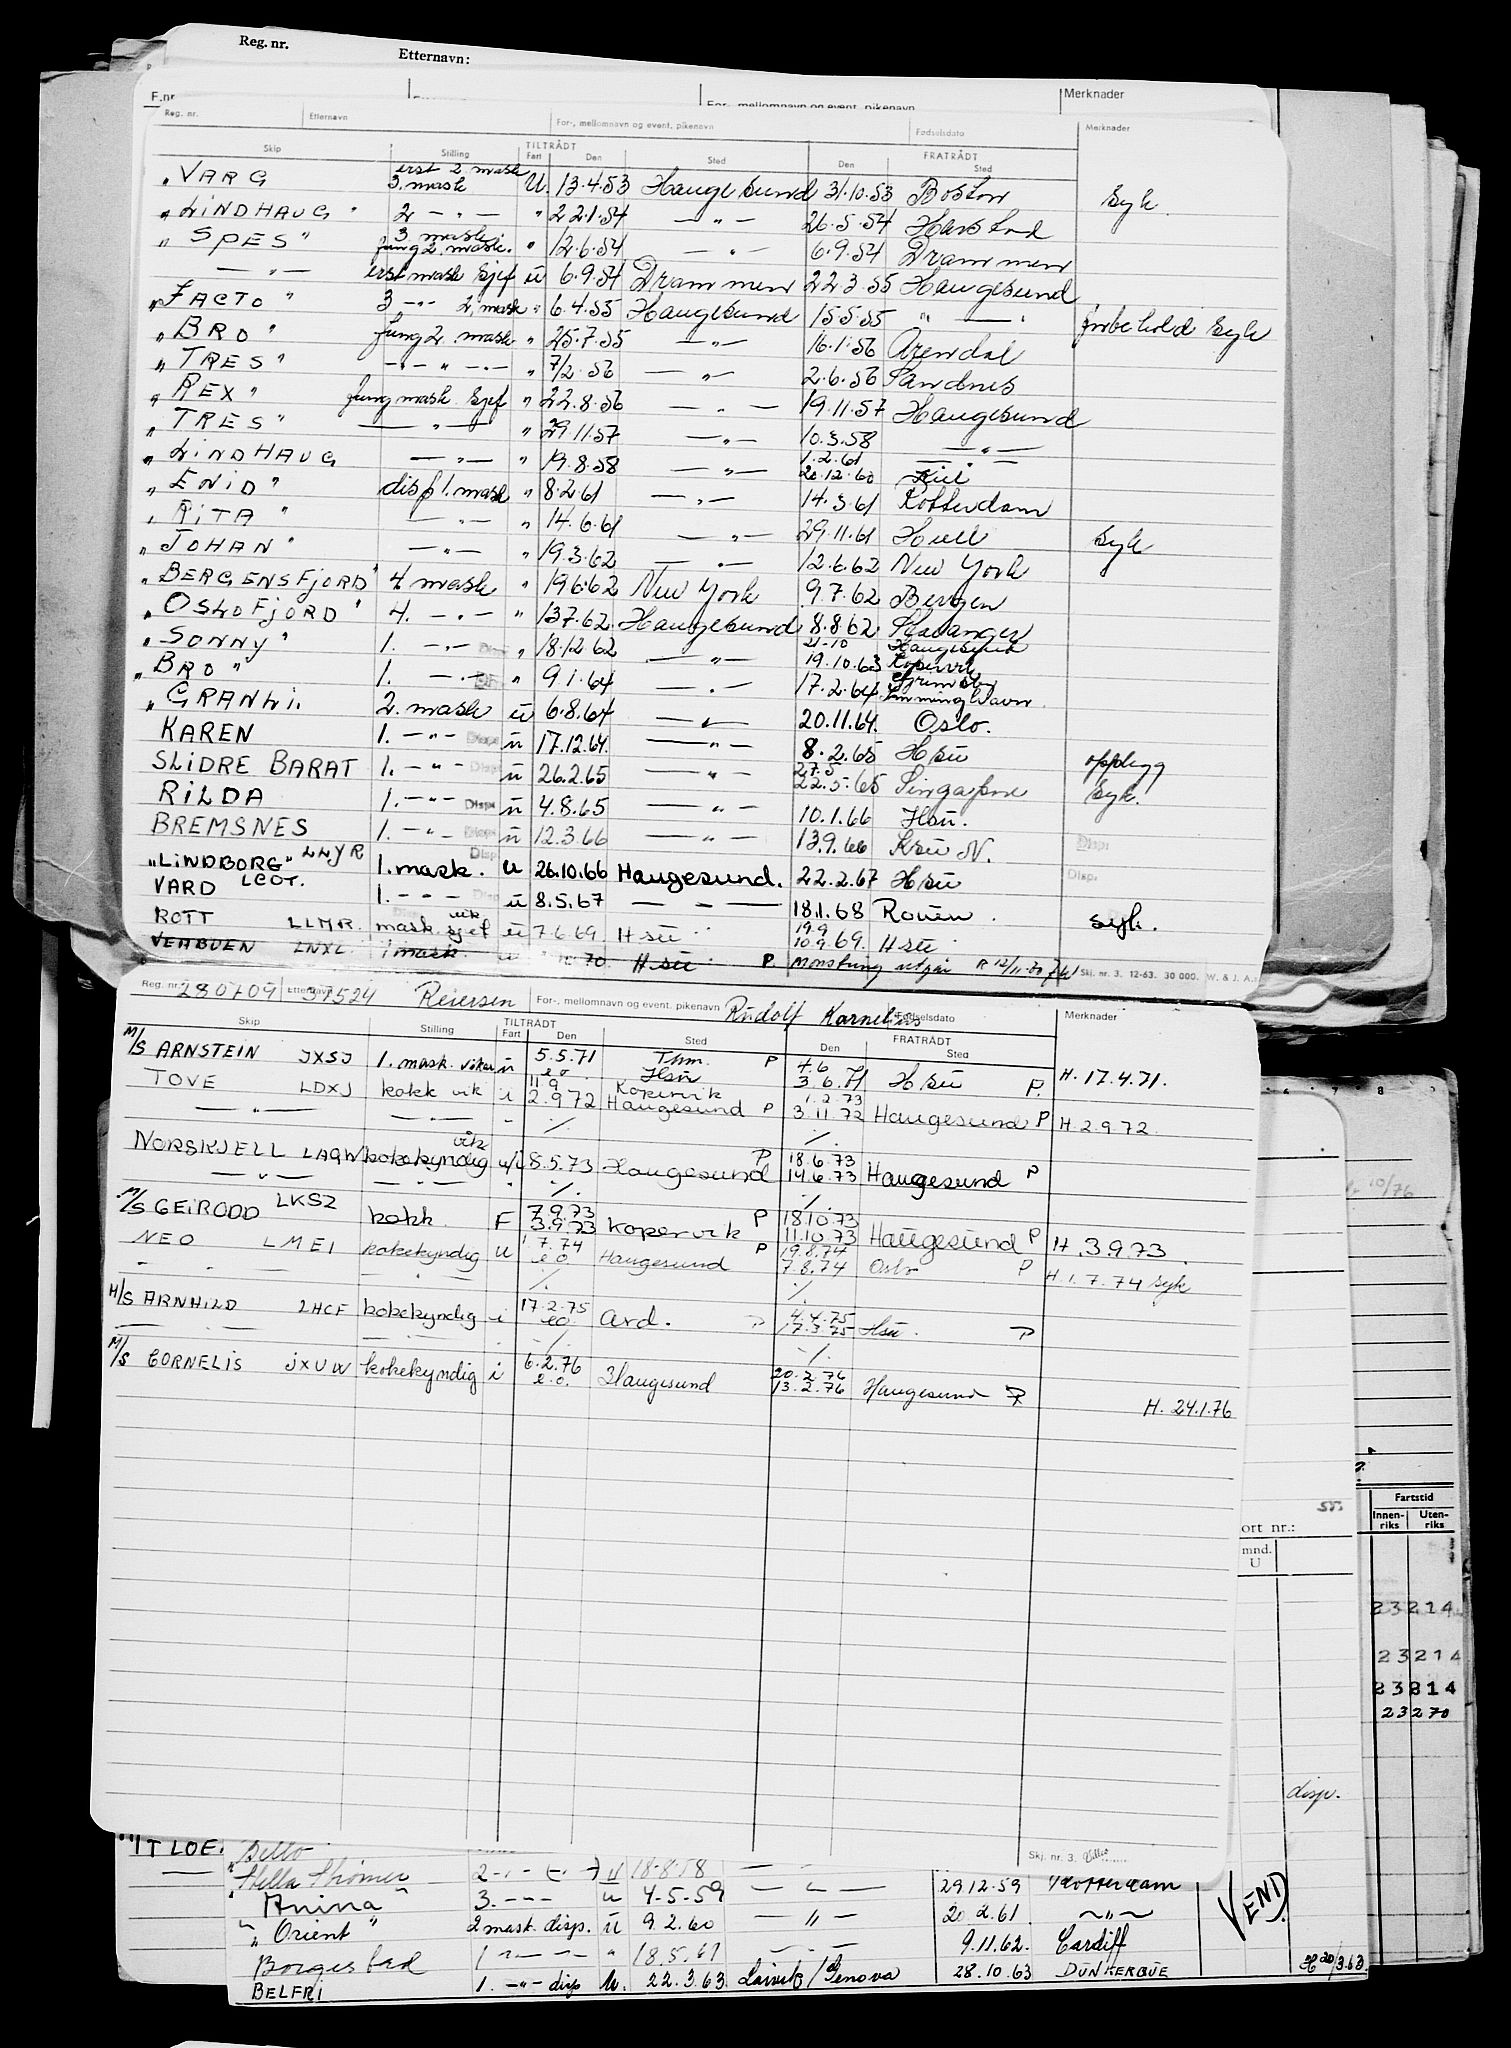 Reg. nr. Etternavn:
F.nr Merknader
For-, mellomnavn og event. pikenavn
Reg. nr. Etternavn For-, mellomnavn og event. pikenavn Fødselsdato Merknader
TILTRÅDT FRATRÅDT
Skip Stilling Fart Den Sted Den Sted
„VARG erst 2. mask 3. mask U. 13.4.53 Haugesund 31.10.53 Boston Syk
„LINDHAUG" 2 — " — " 22.1.54 — " — 26.5.54 Harstad
„SPES" 3 mask. fung 2. mask. " 12.6.54 — " — 6.9.54 Drammen
— " — erst mask sjef u 6.9.54 Drammen 22.3.55 Haugesund
„FACTO" 3 — " — 2. mask " 6.4.55 Haugesund 15.5.55 " — " forbehold Syk
„BRO" fung 2. mask " 25.7.55 — " — 16.1.56 Arendal
„TRES" — " — " — " — " 7/2.56 — " — 2.6.56 Sandnes
„REX" fung mask sjef " 22.8.56 — " — 19.11.57 Haugesund
„TRES" — " — " 29.11.57 — " — 10.3.58 — " —
„LINDHAUG — " — " 19.8.58 — " — 1.2.61 20.12.60 — " — Kiel
„ENID" disp 1. mask " 8.2.61 — " — 14.3.61 Rotterdam
„RITA" — " — " 14.6.61 — " — 29.11.61 Hull Syk
„JOHAN" — " — " 19.3.62 — " — 12.6.62 New York
„BERGENSFJORD" 4 mask " 19.6.62 New York 9.7.62 Bergen
„OSLOFJORD" 4. — " — " 13.7.62. Haugesund 8.8.62 Stavanger
„SONNY" 1. — " — Disp " 18.12.62 — " — 21-10 19.10.63 Haugesund Kopervik
„BRO" 1. — " — " 9.1.64 — " — 17.2.64 Grimsby Immingham
„GRANLI. 2. mask u 6.8.64 — " — 20.11.64. Oslo.
KAREN 1. — " — Disp u 17.12.64. — " — 8.2.65 Hsu opplegg
SLIDRE BARAT 1. — " — Disp u 26.2.65 — " — 27.5 22.5.65 Singapore Syk.
RILDA 1. — " — Disp u 4.8.65 — " — 10.1.66 Hsu.
BREMSNES 1. — " — Disp u 12.3.66 — " — 13.9.66 Ksu N. Disp
„LINDBORG" LLYR 1. mask. Disp u 26.10.66 Haugesund. 22.2.67 Hsu Disp.
VARD LCOT. 1. — " — u 8.5.67 — " — 18.1.68 Rouen. syk.
ROTT LLMR. mask. sjef vik u 7.6.69. Hsu 19.9 10.9.69. Hsu
LNXL. 1 mask. 70 Hsu P. Mønstring utgår R 12/11.70
Skj. nr. 3. 12-63. 30 000. W. & J. A.
Reg. nr. 280709 Etternavn 37524 Reiersen For-, mellomnavn og event. pikenavn Rudolf Kornelius Fødselsdato Merknader
TILTRÅDT FRATRÅDT
Skip Stilling Fart Den Sted Den Sted
M/S ARNSTEIN JXSJ 1. mask. vikar u 5.5.71 e.o. Thm. Hsu P 4.6 3.6.71 Hsu P. H. 17.4.71.
TOVE LDXJ kokk vik i 11.9 2.9.72 Kopervik Haugesund P 1.2.73 3.11.72 Haugesund P H. 2.9.72.
— " — — " — " ./. ./.
NORSKJELL LAQW kokekyndig vik u/i 8.5.73 Haugesund P 18.6.73 14.6.73 Haugesund P
— " — — " — " ./. ./.
M/S GEIRODD LKSZ kokk F 7.9.73 3.9.73 Kopervik P 18.10.73 11.10.73 Haugesund P H. 3.9.73
NEO LMEI kokekyndig U 1.7.74 e.o. Haugesund P 19.8.74 7.8.74 Oslo P H. 1.7.74 syk
— " — — " — ./. ./.
M/S ARNHILD LHCF kokekyndig i 17.2.75 e.o. Ard. P 4.4.75 17.3.75 Hsu. P
— — — — " — ./. ./.
M/S CORNELIS JXUW kokekyndig i 6.2.76 e.o. Haugesund 20.2.76 13.2.76 Haugesund P
H. 24.1.76
10/76
7 8
Fartstid
ort nr.: Innen-riks Uten-riks
mnd.
U
23214
23214
23214
23270
disp.
Skj. nr. 3.
M/T LOE
Bello
"Stella Tromer 2 — " — u 18-8-58 — " —
"Anina" 3. — — — u 4-5-59 — " — 29.12.59 Rotterdam
„Orient" 2 mask. disp. u 9.2.60 — " — 20.2.61 — " —
Borgestad 1 — " — — " 18.5.61 — " — 9.11.62. Cardiff
BELFRI 1. — " — disp u. 22.3.63 Larvik/Genova 28.10.63 DUNKERQUE H 20/3.63
VEND